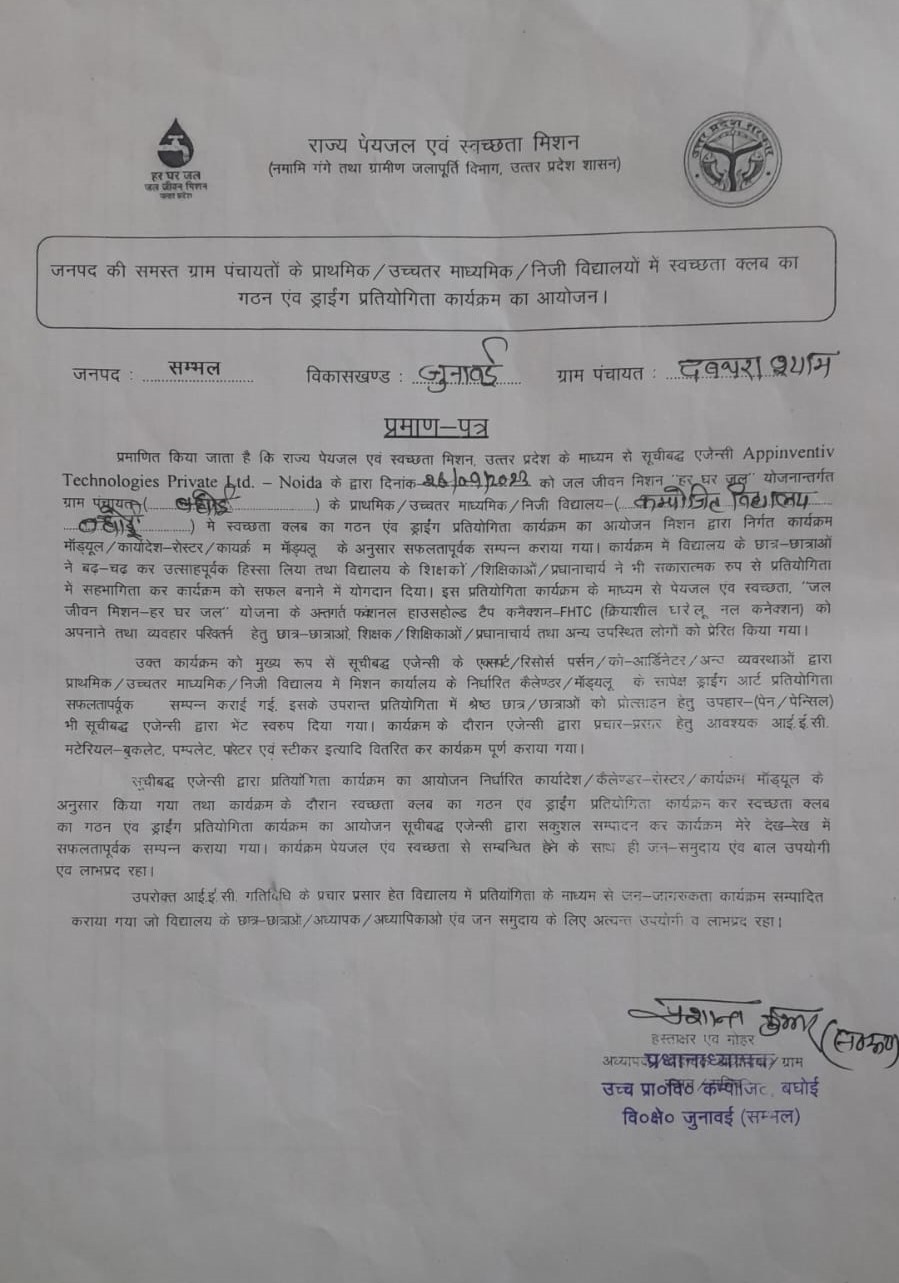 हर घर जल
जल जीवन मिशन
उत्तर प्रदेश
राज्य पेयजल एवं स्वच्छता मिशन
(नमामि गंगे तथा ग्रामीण जलापूर्ति विभाग, उत्तर प्रदेश शासन)
उत्तर प्रदेश सरकार
जनपद की समस्त ग्राम पंचायतों के प्राथमिक/उच्चतर माध्यमिक/निजी विद्यालयों में स्वच्छता क्लब का
गठन एंव ड्राईंग प्रतियोगिता कार्यक्रम का आयोजन।
जनपद : सम्भल विकासखण्ड : जुनावई ग्राम पंचायत : श्याम
प्रमाण–पत्र
प्रमाणित किया जाता है कि राज्य पेयजल एवं स्वच्छता मिशन, उत्तर प्रदेश के माध्यम से सूचीबद्ध एजेन्सी Appinventiv
Technologies Private Ltd. – Noida के द्वारा दिनांक को जल जीवन मिशन "हर घर जल" योजनान्तर्गत
ग्राम पंचायत–( ) के प्राथमिक/उच्चतर माध्यमिक/निजी विद्यालय–(कम्पोजित विद्यालय
) मे स्वच्छता क्लब का गठन एंव ड्राईंग प्रतियोगिता कार्यक्रम का आयोजन मिशन द्वारा निर्गत कार्यक्रम
मॉड्यूल/कार्यादेश–रोस्टर/कायर्क्र म मॉड्यलू के अनुसार सफलतापूर्वक सम्पन्न कराया गया। कार्यक्रम में विद्यालय के छात्र–छात्राओं
ने बढ़–चढ़ कर उत्साहपूर्वक हिस्सा लिया तथा विद्यालय के शिक्षकों/शिक्षिकाओं/प्रधानाचार्य ने भी सकारात्मक रुप से प्रतियोगिता
में सहभागिता कर कार्यक्रम को सफल बनाने में योगदान दिया। इस प्रतियोगिता कार्यक्रम के माध्यम से पेयजल एंव स्वच्छता, "जल
जीवन मिशन–हर घर जल" योजना के अर्न्तगत फंक्शनल हाउसहोल्ड टैप कनैक्शन–FHTC (क्रियाशील घरेलू नल कनेक्शन) को
अपनाने तथा व्यवहार परिवर्तन हेतु छात्र–छात्राओं, शिक्षक/शिक्षिकाओं/प्रधानाचार्य तथा अन्य उपस्थित लोगों को प्रेरित किया गया।
उक्त कार्यक्रम को मुख्य रूप से सूचीबद्ध एजेन्सी के एक्सर्पट/रिसोर्स पर्सन/को–आर्डिनेटर/अन्य व्यवस्थाओं द्वारा
प्राथमिक/उच्चतर माध्यमिक/निजी विद्यालय में मिशन कार्यालय के निर्धारित कैलेण्डर/मॉड्यलू के सापेक्ष ड्राईंग आर्ट प्रतियोगिता
सफलतापर्वूक सम्पन्न कराई गई, इसके उपरान्त प्रतियोगिता में श्रेष्ठ छात्र/छात्राओं को प्रोत्साहन हेतु उपहार–(पेन/पेन्सिल)
भी सूचीबद्ध एजेन्सी द्वारा भेंट स्वरुप दिया गया। कार्यक्रम के दौरान एजेन्सी द्वारा प्रचार–प्रसार हेतु आवश्यक आई.ई.सी.
मटेरियल–बुकलेट, पम्पलेट, पोस्टर एवं स्टीकर इत्यादि वितरित कर कार्यक्रम पूर्ण कराया गया।
सूचीबद्ध एजेन्सी द्वारा प्रतियोगिता कार्यक्रम का आयोजन निर्धारित कार्यादेश/कैलेण्डर–रोस्टर/कार्यक्रम मॉड्यूल के
अनुसार किया गया तथा कार्यक्रम के दौरान स्वच्छता क्लब का गठन एंव ड्राईंग प्रतियोगिता कार्यक्रम कर स्वच्छता क्लब
का गठन एंव ड्राईंग प्रतियोगिता कार्यक्रम का आयोजन सूचीबद्ध एजेन्सी द्वारा सकुशल सम्पादन कर कार्यक्रम मेरे देख–रेख में
सफलतापूर्वक सम्पन्न कराया गया। कार्यक्रम पेयजल एंव स्वच्छता से सम्बन्धित होने के साथ ही जन–समुदाय एंव बाल उपयोगी
एंव लाभप्रद रहा।
उपरोक्त आई.ई.सी. गतिविधि के प्रचार प्रसार हेत विद्यालय में प्रतियोगिता के माध्यम से जन–जागरुकता कार्यक्रम सम्पादित
कराया गया जो विद्यालय के छात्र–छात्राओं/अध्यापक/अध्यापिकाओ एंव जन समुदाय के लिए अत्यन्त उपयोगी व लाभप्रद रहा।
प्रशान्त कुमार
हस्ताक्षर एवं मोहर
प्रधानाध्यापक ग्राम
उच्च प्रा०वि० कम्पोजिट, बघोई
वि०क्षे० जुनावई (सम्भल)